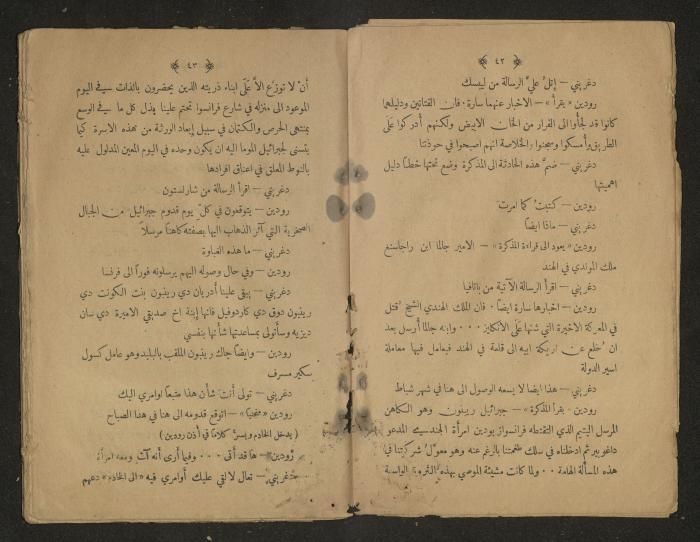 ٤٢
دغريني — إتلُ عليَّ الرسالة من ليبسك
رودين «يقرأ» — الاخبار عنهما سارة. فان الفتاتين ودليلهما
كانوا قد لجأوا الى الفرار من الخان الابيض ولكنهم أدركوا عَلَى
الطريق وأمسكوا وسجنوا والخلاصة انهم اصبحوا في حوذتنا
دغريني — ضمَّ هذه الحادثة الى المذكرة وضع تحتها خطاً دليل
اهميتها
رودين — كتبتُ كما امرت
دغريني — ماذا ايضاً
رودين «يعود الى قراءة المذكرة» — الامير جالما ابن راجاسنغ
ملك الموندي في الهند
دغريني — اقرأ الرسالة الآتية من باتافيا
رودين — اخبارها سارة ايضاً. فان الملك الهندي الشيخ قُتل
في المعركة الاخيرة التي شنها عَلَى الانكليز . . . وابنه جالما أُرسل بعد
ان خُلع عن اريكة ابيه الى قلعة في الهند فيعامل فيها معاملة
اسير الدولة
دغريني — هذا ايضا لا يسعه الوصول الى هنا في شهر شباط
رودين — يقرأ المذكرة» — جبرائيل رينبون وهو الكاهن
المرسل اليتيم الذي التقطته فرانسواز بودين امرأة الجندي المدعو
داغوبير ثم ادخلناه في سلك طغمتنا بالرغم عنه وهو معوَّل شركتنا في
هذه المسألة الهامة . . ولما كانت مشيئة الموصي بهذه الثروة الواسعة
٤٣
أنْ لا توزَّع الاَّ عَلَى ابناء ذريته الذين يحضرون بالذات في اليوم
الموعود الى منزله في شارع فرانسوا تحتم علينا بذل كل ما في الوسع
بمنتهى الحرص والكتمان في سبيل إبعاد الورثة من هذه الاسرة كيا
يتسنى لجبرائيل الموما اليه ان يكون وحده في اليوم المعين المدلول عليه
بالنوط المعلق في اعناق افرادها
دغريني — اقرأ الرسالة من شارلستون
رودين — يتوقعون في كلّ يوم قدوم جبرائيل من الجبال
الصخرية التي آثر الذهاب اليها بصفته كاهناً مرسلاً
دغريني — ما هذه الغباوة
رودين — وفي حال وصوله اليهم يرسلونه فوراً الى فرنسا
دغريني — يبقى علينا أدريان دي رينبون بنت الكونت دي
رينبون دوق دي كاردوفيل فانها إبنة اخ صديقتي الاميرة دي سان
ديزيه وسأتولى بمساعدتها شأنها بنفسي
رودين — وايضاً جاك رينبون الملقب بالبليد وهو عامل كسول
سكير مسرف
دغريني — تولى أنت شأن هذا متبعاً اوامري اليك
رودين «منحنياً» — اتوقع قدومه الى هنا في هذا الصباح
( يدخل الخادم ويسرّ كلاماً في أذن رودين )
رودين — ها قد أتى . . . وفيما أرى أنه آت ومعه امرأة
دغريني — تعال لألقي عليك أوامري فيه «الى الخادم» دعهم